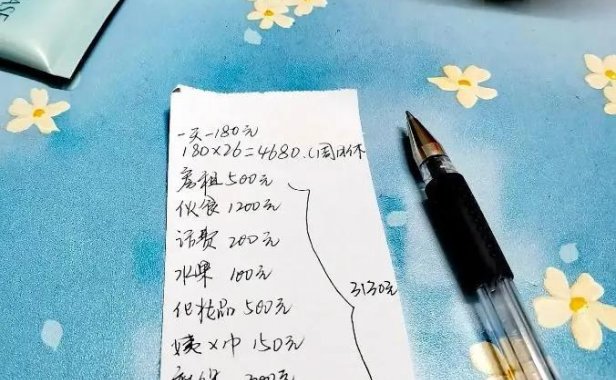 一天一180元
180×26=4680.(周日休
房租500元
伙食1200元
话费200元
水果100元
化妆品500元
姨×巾150元
3130元